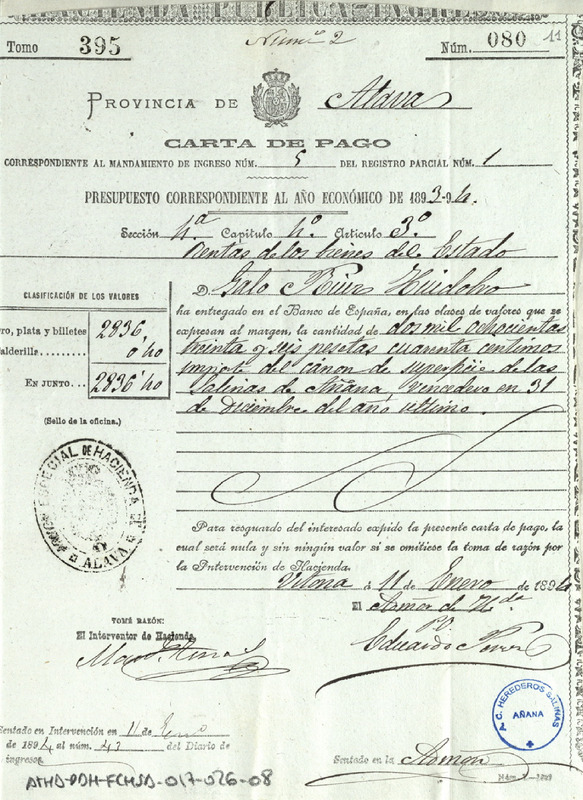 Tomo 395
Num.º 2
Núm. 080
11
PROVINCIA DE Alava
CARTA DE PAGO
CORRESPONDIENTE AL MANDAMIENTO DE INGRESO NÚM. 5 DEL REGISTRO PARCIAL NÚM. 1
PRESUPUESTO CORRESPONDIENTE AL AÑO ECONÓMICO DE 1893-94.
Sección 4ª Capítulo 4º Artículo 3º
Rentas de los bienes del Estado
D. Galo Ruiz Huidobro
ha entregado en el Banco de España, en las clases de valores que se
expresan al margen, la cantidad de dos mil ochocientas
treinta y seis pesetas cuarenta centimos
importe del cánon de superficie de las
Salinas de Añana, vencedero en 31
de Diciembre del año ultimo.
CLASIFICACIÓN DE LOS VALORES
ro, plata y billetes 2836
alderilla 0'40
EN JUNTO 2836'40
(Sello de la oficina.)
ESPECIAL DE HACIENDA
ALAVA
Para resguardo del interesado expido la presente carta de pago, la
cual será nula y sin ningún valor si se omitiese la toma de razón por
la Intervención de Hacienda.
Vitoria á 11 de Enero de 1894
El
TOMÉ RAZÓN:
El Interventor de Hacienda,
P.O.
Eduardo
A. C. HEREDEROS SALINAS
AÑANA
Sentado en Intervención en 11 de Enero
de 1894 al núm. 43 del Diario de
ingresos.
Sentado en la
ATHA-DDH-FCHSD-017-026-08